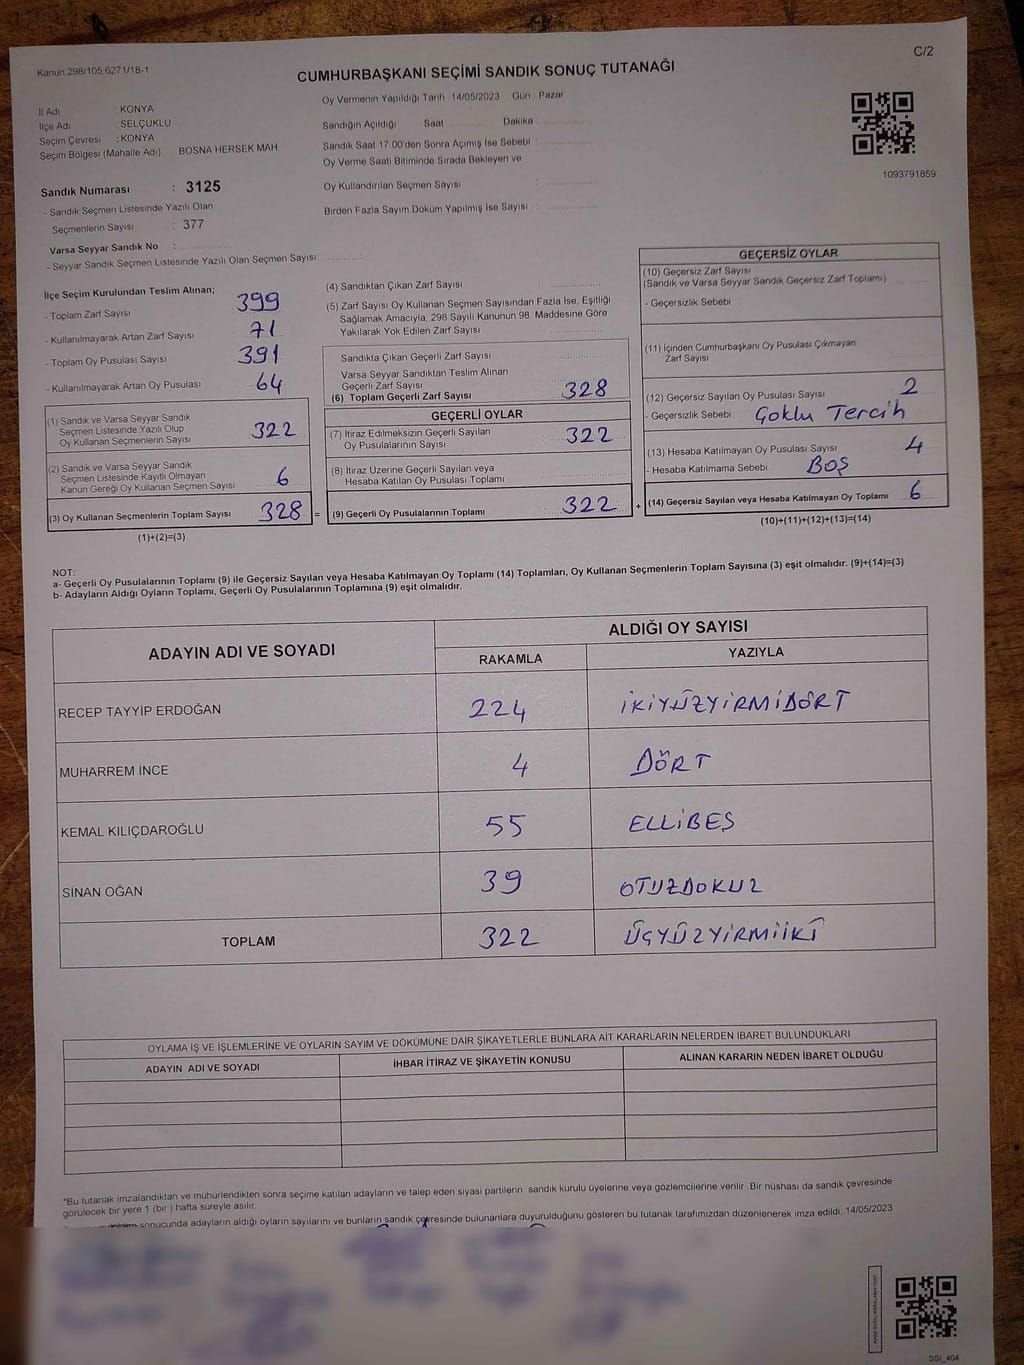 Kanun:298/105.6271/18-1
C/2
CUMHURBAŞKANI SEÇİMİ SANDIK SONUÇ TUTANAĞI
İl Adı KONYA
İlçe Adı : SELÇUKLU
Seçim Çevresi : KONYA
Seçim Bölgesi (Mahalle Adı) BOSNA HERSEK MAH.
Sandık Numarası : 3125
- Sandık Seçmen Listesinde Yazılı Olan
Seçmenlerin Sayısı : 377
Varsa Seyyar Sandık No :
- Seyyar Sandık Seçmen Listesinde Yazılı Olan Seçmen Sayısı:
Oy Vermenin Yapıldığı Tarih : 14/05/2023 Gün : Pazar
Sandığın Açıldığı Saat Dakika
Sandık Saat 17.00'den Sonra Açımış İse Sebebi :
Oy Verme Saati Bitiminde Sırada Bekleyen ve
Oy Kullandırılan Seçmen Sayısı :
Birden Fazla Sayım Döküm Yapılmış İse Sayısı :
1093791859
İlçe Seçim Kurulundan Teslim Alınan;
- Toplam Zarf Sayısı 399
- Kullanılmayarak Artan Zarf Sayısı 71
- Toplam Oy Pusulası Sayısı 391
- Kullanılmayarak Artan Oy Pusulası 64
(1) Sandık ve Varsa Seyyar Sandık
Seçmen Listesinde Yazılı Olup
Oy Kullanan Seçmenlerin Sayısı 322
(2) Sandık ve Varsa Seyyar Sandık
Seçmen Listesinde Kayıtlı Olmayan
Kanun Gereği Oy Kullanan Seçmen Sayısı 6
(3) Oy Kullanan Seçmenlerin Toplam Sayısı 328 =
(1)+(2)=(3)
(4) Sandıktan Çıkan Zarf Sayısı :
(5) Zarf Sayısı Oy Kullanan Seçmen Sayısından Fazla İse, Eşitliği
Sağlamak Amacıyla, 298 Sayılı Kanunun 98. Maddesine Göre
Yakılarak Yok Edilen Zarf Sayısı :
Sandıkta Çıkan Geçerli Zarf Sayısı
Varsa Seyyar Sandıktan Teslim Alınan
Geçerli Zarf Sayısı
(6) Toplam Geçerli Zarf Sayısı 328
GEÇERLİ OYLAR
(7) İtiraz Edilmeksizin Geçerli Sayılan
Oy Pusulalarının Sayısı 322
(8) İtiraz Üzerine Geçerli Sayılan veya
Hesaba Katılan Oy Pusulası Toplamı
(9) Geçerli Oy Pusulalarının Toplamı 322 +
GEÇERSİZ OYLAR
(10) Geçersiz Zarf Sayısı
(Sandık ve Varsa Seyyar Sandık Geçersiz Zarf Toplamı)
- Geçersizlik Sebebi :
(11) İçinden Cumhurbaşkanı Oy Pusulası Çıkmayan
Zarf Sayısı
(12) Geçersiz Sayılan Oy Pusulası Sayısı 2
- Geçersizlik Sebebi : Çoklu Tercih
(13) Hesaba Katılmayan Oy Pusulası Sayısı 4
- Hesaba Katılmama Sebebi : BOŞ
(14) Geçersiz Sayılan veya Hesaba Katılmayan Oy Toplamı 6
(10)+(11)+(12)+(13)=(14)
NOT:
a- Geçerli Oy Pusulalarının Toplamı (9) ile Geçersiz Sayılan veya Hesaba Katılmayan Oy Toplamı (14) Toplamları, Oy Kullanan Seçmenlerin Toplam Sayısına (3) eşit olmalıdır. (9)+(14)=(3)
b- Adayların Aldığı Oyların Toplamı, Geçerli Oy Pusulalarının Toplamına (9) eşit olmalıdır.
ADAYIN ADI VE SOYADI ALDIĞI OY SAYISI
RAKAMLA YAZIYLA
RECEP TAYYİP ERDOĞAN 224 İKİYÜZYİRMİDÖRT
MUHARREM İNCE 4 DÖRT
KEMAL KILIÇDAROĞLU 55 ELLİBEŞ
SİNAN OĞAN 39 OTUZDOKUZ
TOPLAM 322 ÜÇYÜZYİRMİİKİ
OYLAMA İŞ VE İŞLEMLERİNE VE OYLARIN SAYIM VE DÖKÜMÜNE DAİR ŞİKAYETLERLE BUNLARA AİT KARARLARIN NELERDEN İBARET BULUNDUKLARI
ADAYIN ADI VE SOYADI İHBAR İTİRAZ VE ŞİKAYETİN KONUSU ALINAN KARARIN NEDEN İBARET OLDUĞU
*Bu tutanak imzalandıktan ve mühürlendikten sonra seçime katılan adayların ve talep eden siyasi partilerin sandık kurulu üyelerine veya gözlemcilerine verilir. Bir nüshası da sandık çevresinde
görülecek bir yere 1 (bir ) hafta süreyle asılır.
sonucunda adayların aldığı oyların sayılarını ve bunların sandık çevresinde bulunanlara duyurulduğunu gösteren bu tutanak tarafımızdan düzenlenerek imza edildi. 14/05/2023
SSI_404